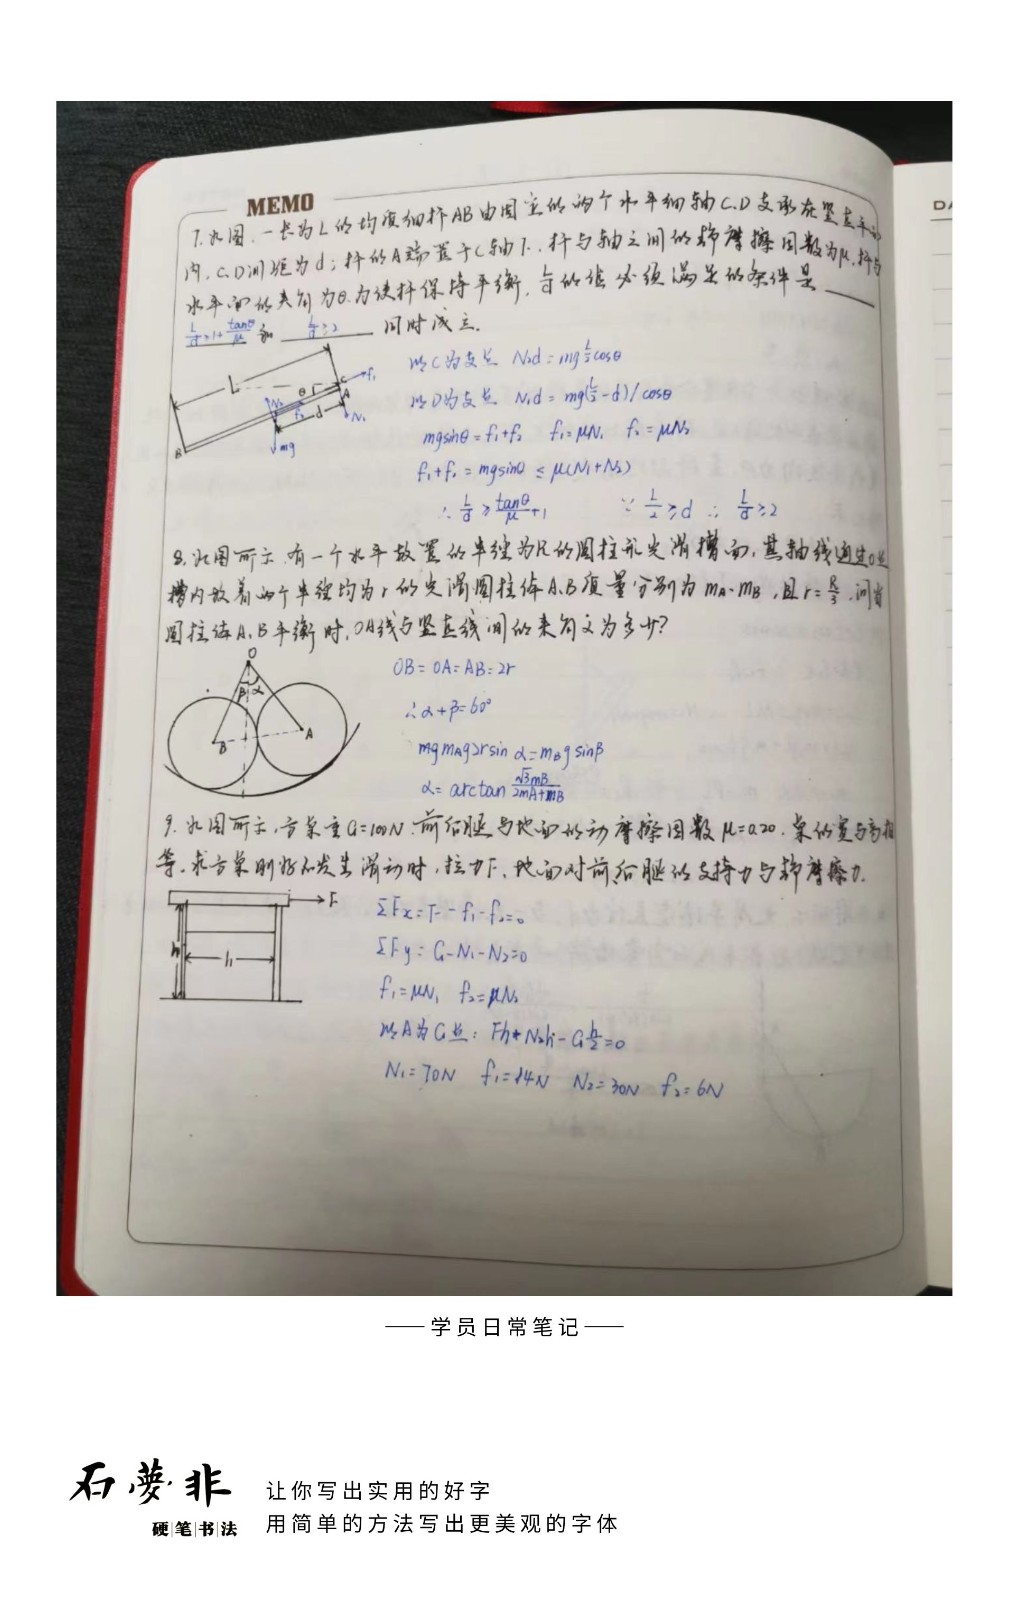 MEMO
DA
7.如图.一长为L的均质细杆AB由固定的两个水平细轴C.D支承在竖直平面
内.C.D间距为d;杆的A端置于C轴下.杆与轴之间的静摩擦因数为μ.杆与
水平面的夹角为θ.为使杆保持平衡.L/d的值必须满足的条件是______
L/d≥1+tanθ/μ 和 L/d≥2 同时成立.
以C为支点 N₂d=mg L/2 cosθ
以D为支点 N₁d=mg(L/2-d)/cosθ
mgsinθ=f₁+f₂ f₁=μN₁ f₂=μN₂
f₁+f₂=mgsinθ≤μ(N₁+N₂)
∴ L/d≥tanθ/μ+1 ∵ L/2≥d ∴ L/d≥2
L θ C f₁ A N₂ f₂ d N₁ B mg
8.如图所示.有一个水平放置的半径为R的圆柱形光滑槽面,其轴线通过O点
槽内放着两个半径均为r的光滑圆柱体A.B质量分别为mA.mB,且r=R/3.问当
圆柱体A.B平衡时,OA线与竖直线间的夹角α为多少?
OB=OA=AB=2r
∴α+β=60°
mgmAg2rsinα=mBgsinβ
α=arctan √3mB/2mA+mB
O β α B A
9.如图所示,方桌重G=100N.前后腿与地面的动摩擦因数μ=0.20.桌的宽与高相
等.求方桌刚好不发生滑动时,拉力F、地面对前后腿的支持力与静摩擦力.
ΣFx=F-f₁-f₂=0
ΣFy=G-N₁-N₂=0
f₁=μN₁ f₂=μN₂
以A为G点:Fh+N₂h-G h/2=0
N₁=70N f₁=14N N₂=30N f₂=6N
F h h
学员日常笔记
石夢非
硬笔书法
让你写出实用的好字
用简单的方法写出更美观的字体